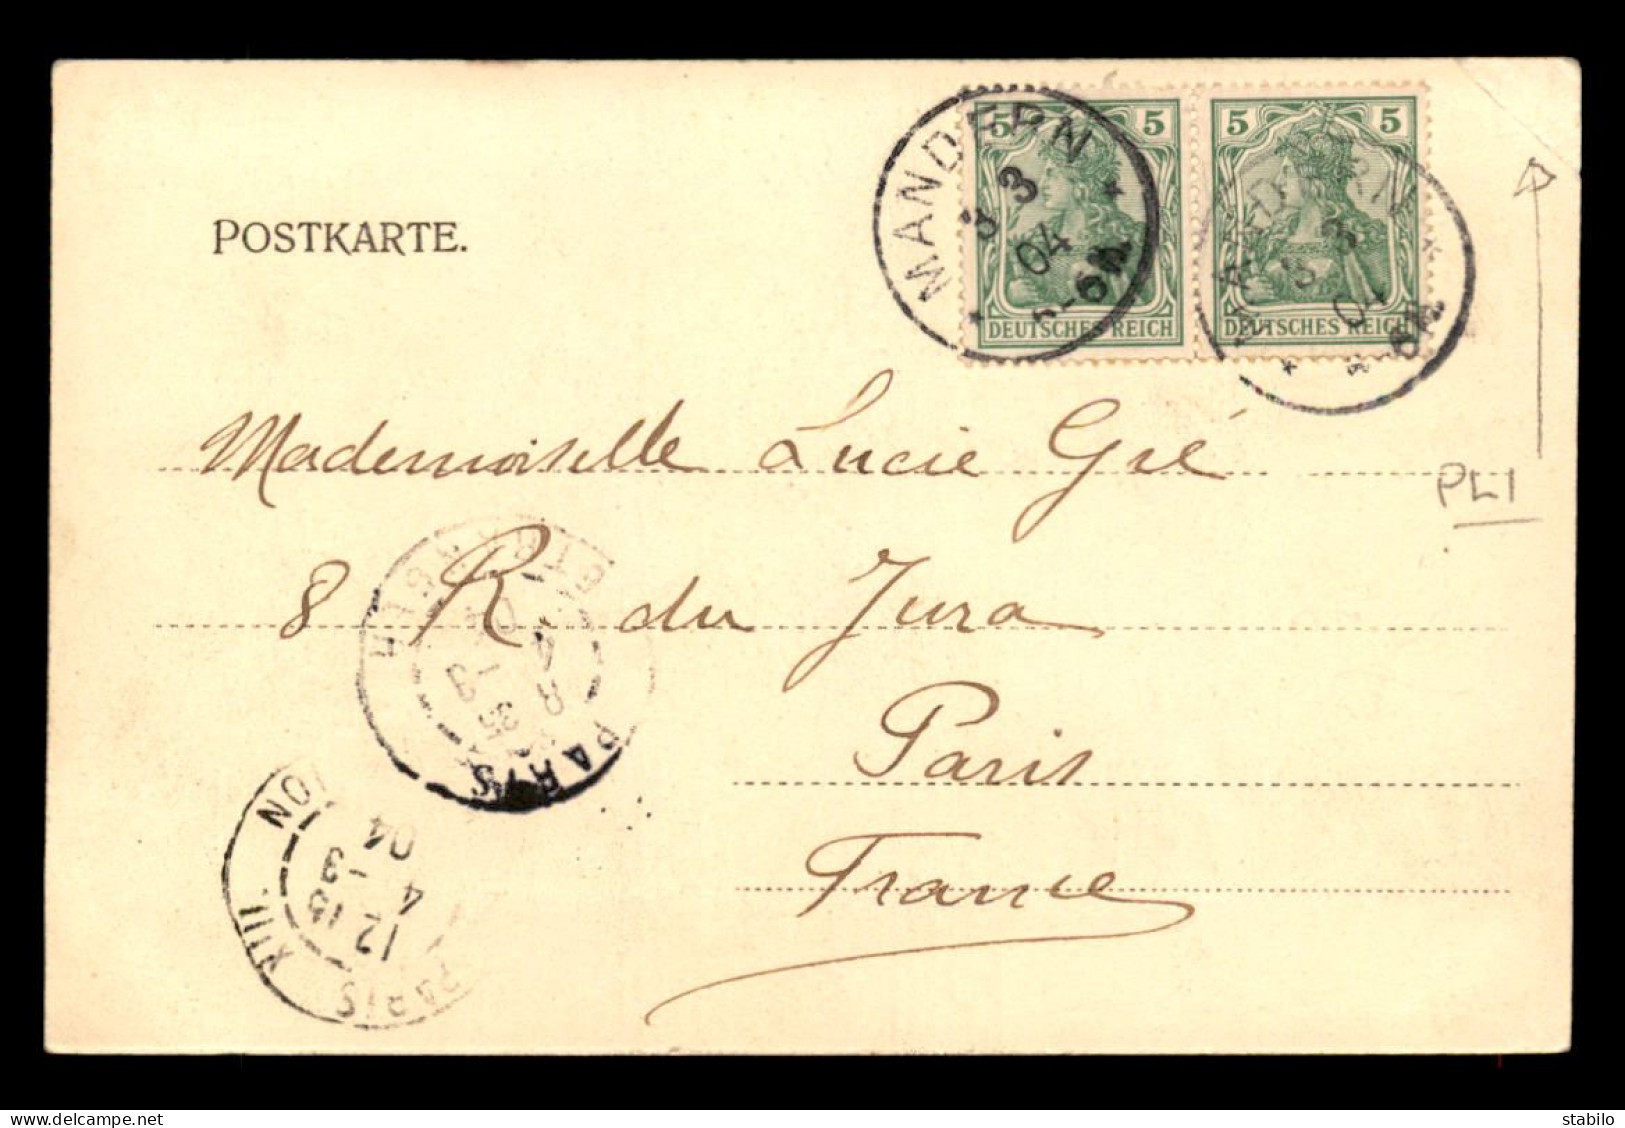 5 5 5 5
MANDERN
3 3
04
5-6N
MANDERN
3 3
04
DEUTSCHES REICH DEUTSCHES REICH
POSTKARTE.
Mademoiselle Lucie Gré
PLI
8 R. du Jura
4 -3
PARIS
Paris
France
PARIS XIII
12 15
4 -3
04
delcampe.net
stabilo